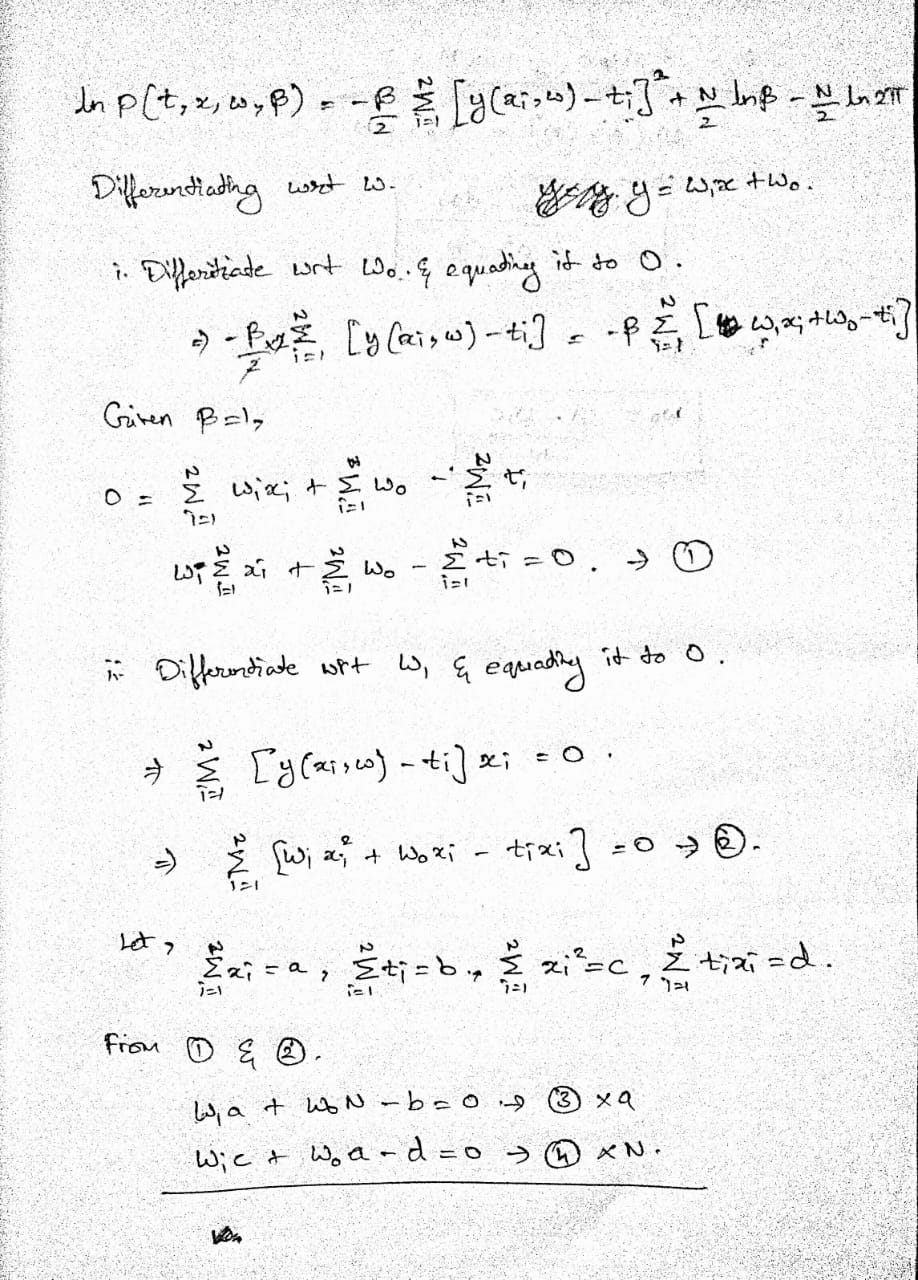 ln p(t, x, w, β) = -β/2 Σ_{i=1}^{N} [y(xi, w) - ti]² + N/2 lnβ - N/2 ln 2π
Differentiating wrt w. y = w₁x + w₀.
i. Differitiate wrt w₀. & equating it to 0.
⇒ -β/2 x2 Σ_{i=1}^{N} [y(xi, w) - ti] = -β Σ_{i=1}^{N} [w₁xi + w₀ - ti]
Given β=1,
0 = Σ_{i=1}^{N} w₁xi + Σ_{i=1}^{N} w₀ - Σ_{i=1}^{N} ti
w₁ Σ_{i=1}^{N} xi + Σ_{i=1}^{N} w₀ - Σ_{i=1}^{N} ti = 0. → ①
ii. Differentiate wrt w₁ & equating it to 0.
⇒ Σ_{i=1}^{N} [y(xi, w) - ti] xi = 0.
⇒ Σ_{i=1}^{N} [w₁xi² + w₀xi - tixi] = 0 → ②.
Let, Σ_{i=1}^{N} xi = a, Σ_{i=1}^{N} ti = b, Σ_{i=1}^{N} xi² = c, Σ_{i=1}^{N} tixi = d.
From ① & ②.
w₁a + w₀N - b = 0 → ③ x a
w₁c + w₀a - d = 0 → ④ x N.